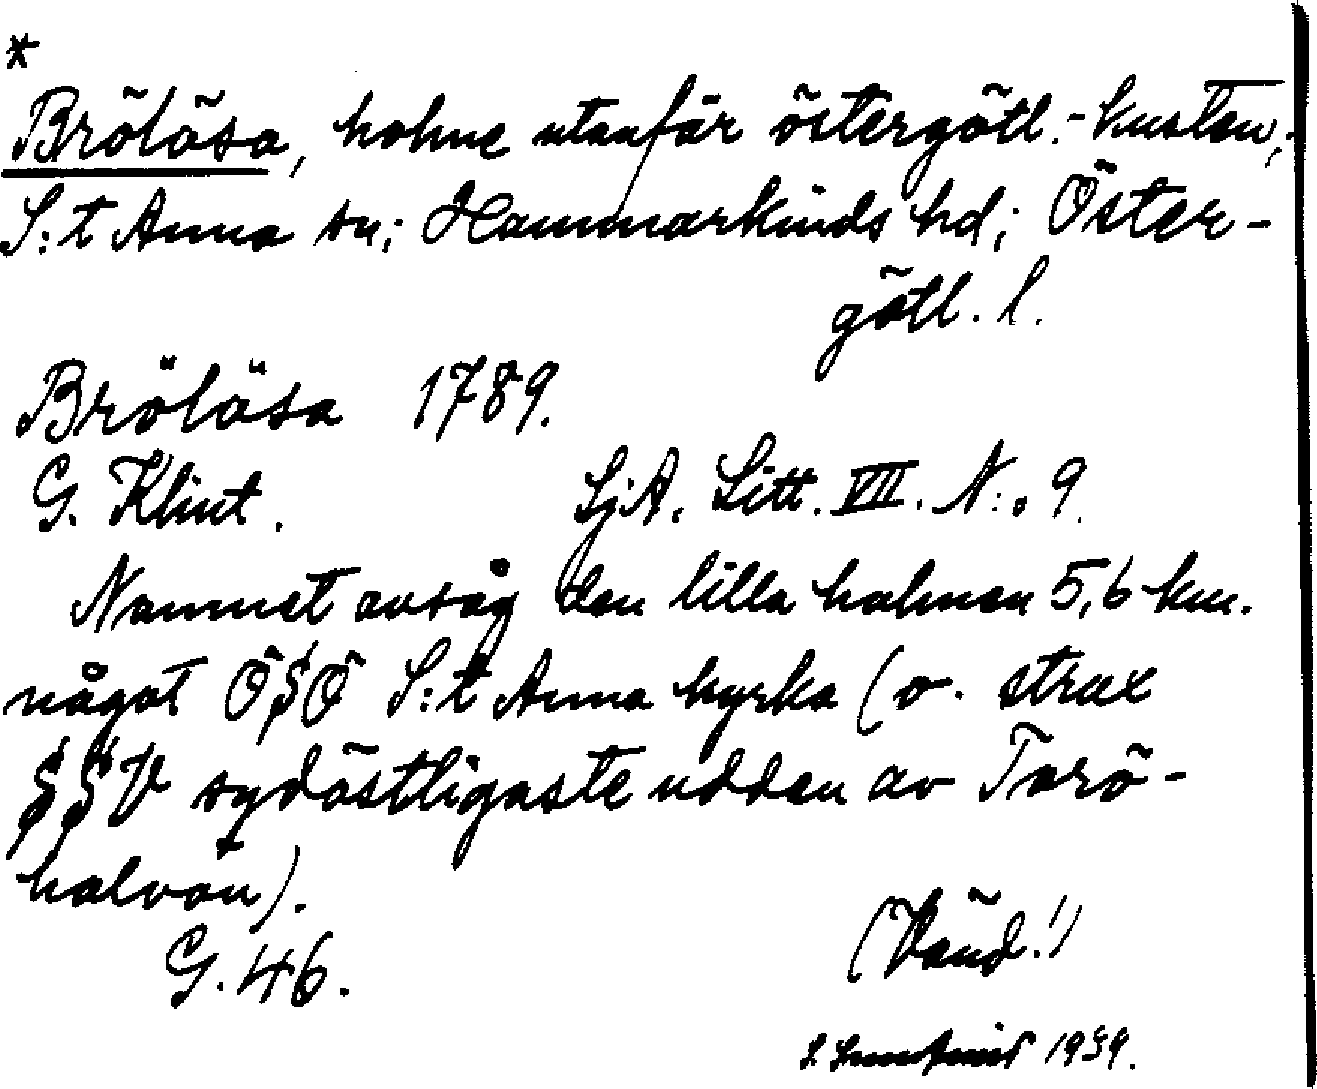 *
Brölösa, holme utanför östergötl.-kusten,
S:t Anna sn; Hammarkinds hd; Öster-
götl. l.
Brölösa 1789.
G. Klint. SjA. Litt. VII. N:o 9.
Namnet avsåg den lilla holmen 5,6 km.
något ÖSÖ S:t Anna kyrka (o. strax
SSV sydöstligaste udden av Torö-
halvön).
G. 46.
(Vänd!)
1939.